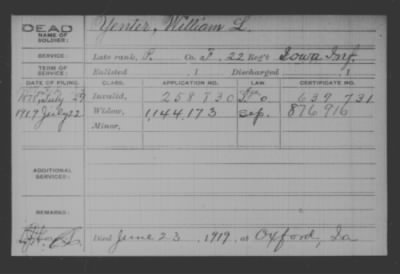 DEAD
NAME OF SOLDIER:
Yenter, William L.
SERVICE:
Late rank, P. Co. F. 22 Reg't Iowa Inf.
TERM OF SERVICE:
Enlisted , 1 Discharged , 1
DATE OF FILING. CLASS. APPLICATION NO. LAW. CERTIFICATE NO.
July 29 Invalid, 258 830 639 731
1919 July 22 Widow, 1,144,173 876916
Minor,
ADDITIONAL SERVICES:
REMARKS:
Died June 23, 1919, at Oxford, Ia